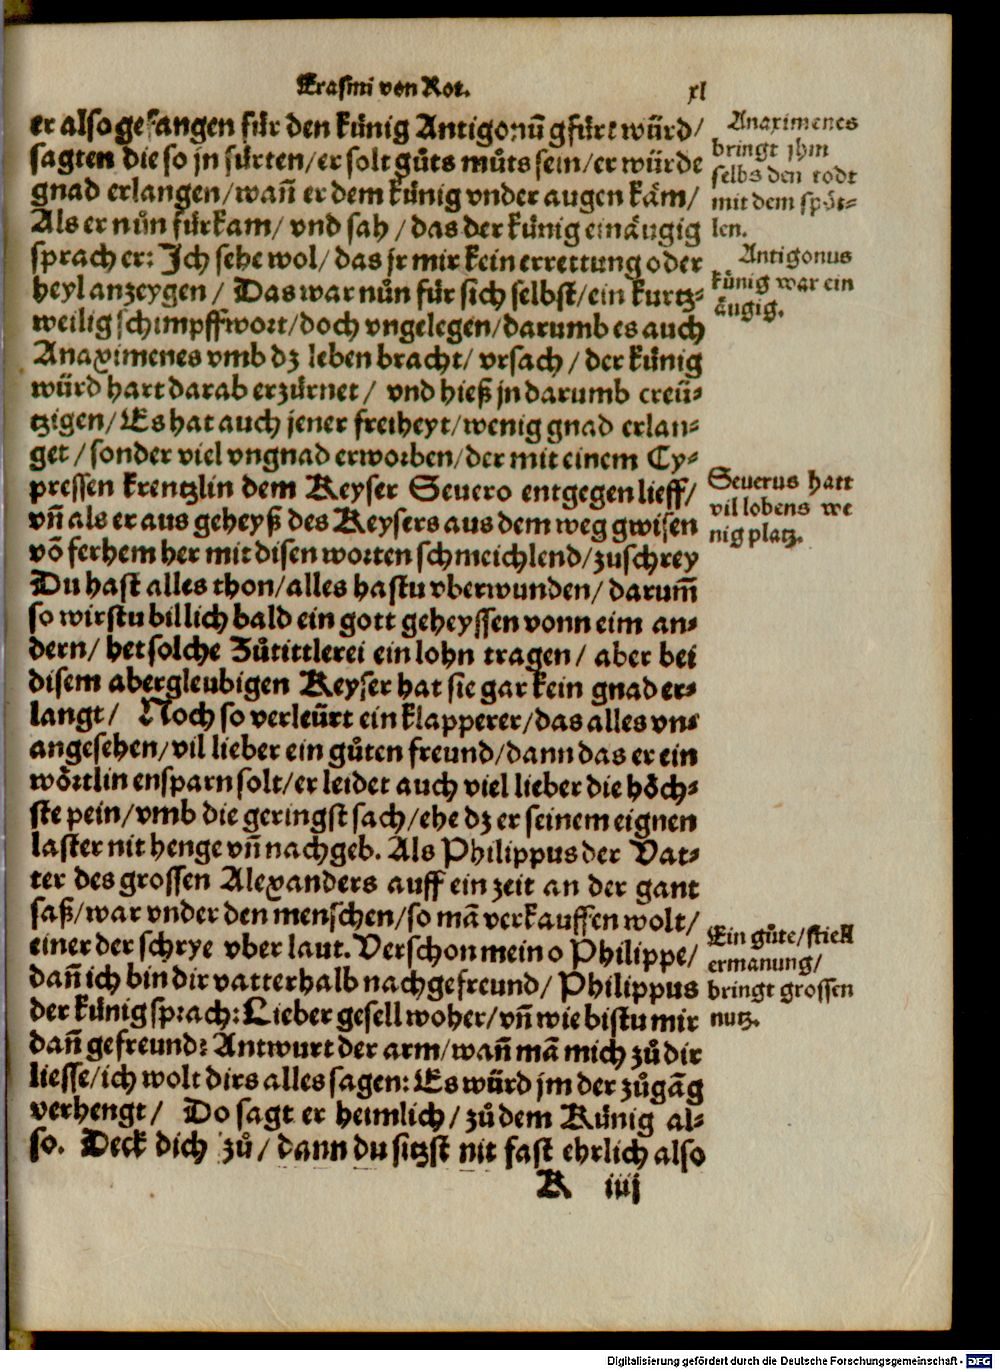 Erasmi von Rot.
xl
er also gefangen für den künig Antigonū gfürt würd/
sagten die so jn fürten/er solt gůts můts sein/er würde
gnad erlangen/wañ er dem künig vnder augen käm/
Als er nůn fürkam/ vnd sah / das der künig einäugig
sprach er: Jch sehe wol/ das jr mir kein errettung oder
heyl anzeygen / Das war nůn für sich selbst/ein kurtz⸗
weilig schimpffwort/doch vngelegen/darumb es auch
Anaximenes vmb dz leben bracht/ vrsach/ der künig
würd hart darab erzürnet/ vnd hieß jn darumb creü⸗
tzigen/ Es hat auch jener freiheyt/wenig gnad erlan⸗
get / sonder viel vngnad erworben/der mit einem Cy⸗
pressen krentzlin dem Keyser Seuero entgegen lieff/
vñ als er aus geheyß des Keysers aus dem weg gwisen
võ ferhem her mit disen worten schmeichlend/zuschrey
Du hast alles thon/alles hastu vberwunden/ darum̃
so wirstu billich bald ein gott geheyssen vonn eim an⸗
dern/ het solche Zůtittlerei ein lohn tragen/ aber bei
disem abergleubigen Keyser hat sie gar kein gnad er⸗
langt/ Noch so verleürt ein klapperer/das alles vn⸗
angesehen/vil lieber ein gůten freund/dann das er ein
wörtlin ensparn solt/er leidet auch viel lieber die höch⸗
ste pein/vmb die geringst sach/ehe dz er seinem eignen
laster nit henge vñ nachgeb. Als Philippus der Vat⸗
ter des grossen Alexanders auff ein zeit an der gant
saß/war vnder den menschen/so mã verkauffen wolt/
einer der schrye vber laut. Verschon mein o Philippe/
dañ ich bin dir vatterhalb nachgefreund/ Philippus
der künig sprach: Lieber gesell woher/vñ wie bistu mir
dañ gefreund? Antwurt der arm/wañ mã mich zů dir
liesse/ich wolt dirs alles sagen: Es würd jm der zůgãg
verhengt/ Do sagt er heimlich/ zů dem Künig al⸗
so. Deck dich zů / dann du sitzst nit fast ehrlich also
K iiij
Anaximenes
bringt jhm
selbs den todt
mit dem spöt⸗
len.
Antigonus
künig war ein
äugig.
Seuerus hatt
vil lobens we
nig platz.
Ein gůte/stiell
ermanung/
bringt grossen
nutz.
Digitalisierung gefördert durch die Deutsche Forschungsgemeinschaft - DFG